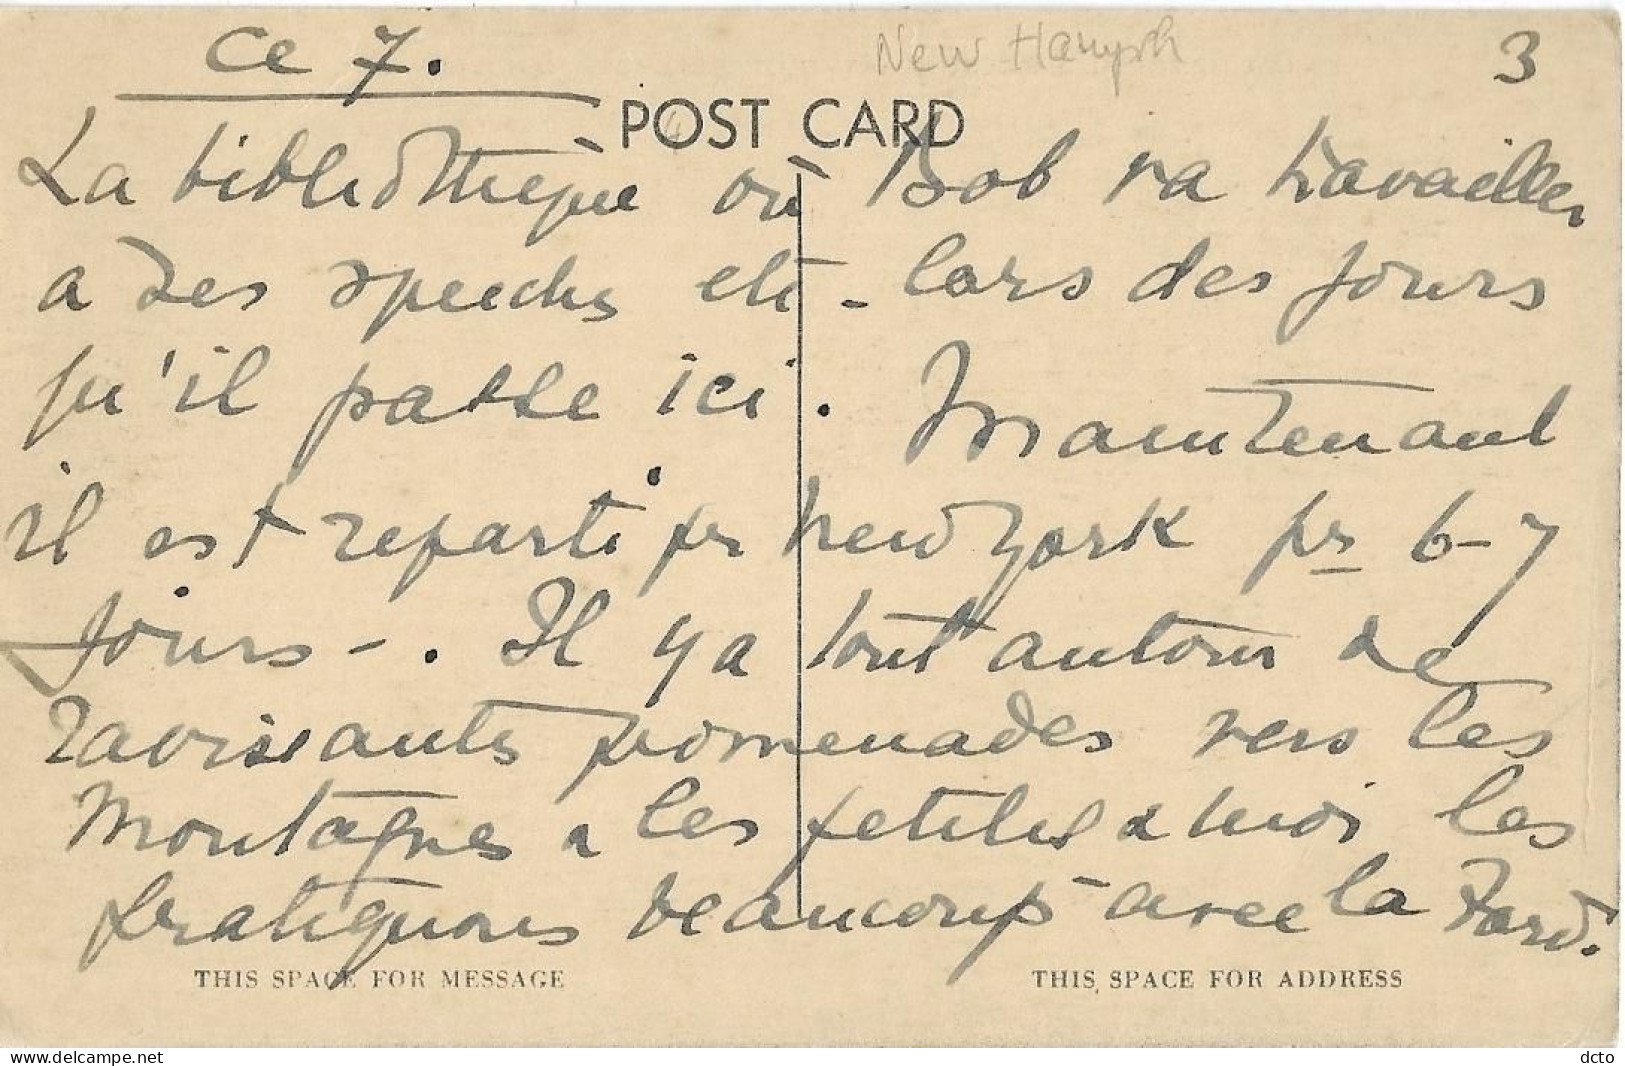 ce 7.
New Hampsh
3
POST CARD
La bibliothèque où Bob va travailler
à des speechs etc - lors des jours
qu'il passe ici. Maintenant
il est reparti pr New York pr 6-7
jours -. Il y a tout autour de
ravissants promenades vers les
montagnes & les petites & moi les
pratiquons beaucoup - avec la Ford.
THIS SPACE FOR MESSAGE
THIS SPACE FOR ADDRESS
www.delcampe.net
dcto